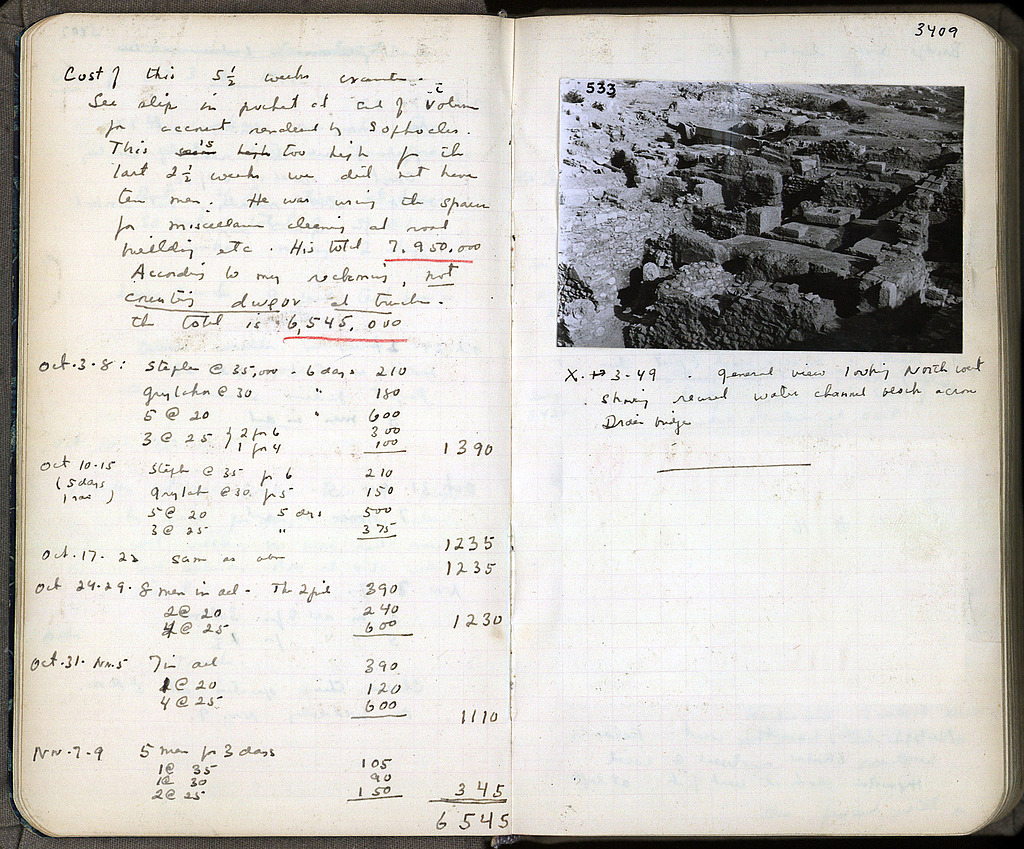 Cost of this 5 1/2 weeks
See slip in pocket at end of volume
for account rendered by Sophocles.
This is too high for the
last 2 1/2 weeks we did not have
ten men. He was using the spares
for miscellaneous cleaning and road
building etc. His total 7,950,000
According to my reckoning, not
counting
the total is 6,545,000
Oct. 3-8: Steph @ 35,000 - 6 days 210
@ 30 " 180
5 @ 20 " 600
3 @ 25 } 2 for 6 300
1 for 4 100 1390
Oct 10-15 Steph @ 35 for 6 210
(5 days @ 30 for 5 150
1 rain) 5 @ 20 5 days 500
3 @ 25 " 375
1235
Oct. 17-22 same as above 1235
Oct 24-29. 8 men in all - The 2 390
2 @ 20 240
4 @ 25 600 1230
Oct. 31 - Nov. 5 7 in all 390
1 @ 20 120
4 @ 25 600
1110
Nov. 7-9 5 men for 3 days
1 @ 35 105
1 @ 30 90
2 @ 25 150 345
6545
3409
533
X-3-49. general view looking North west
showing water channel block across
bridge